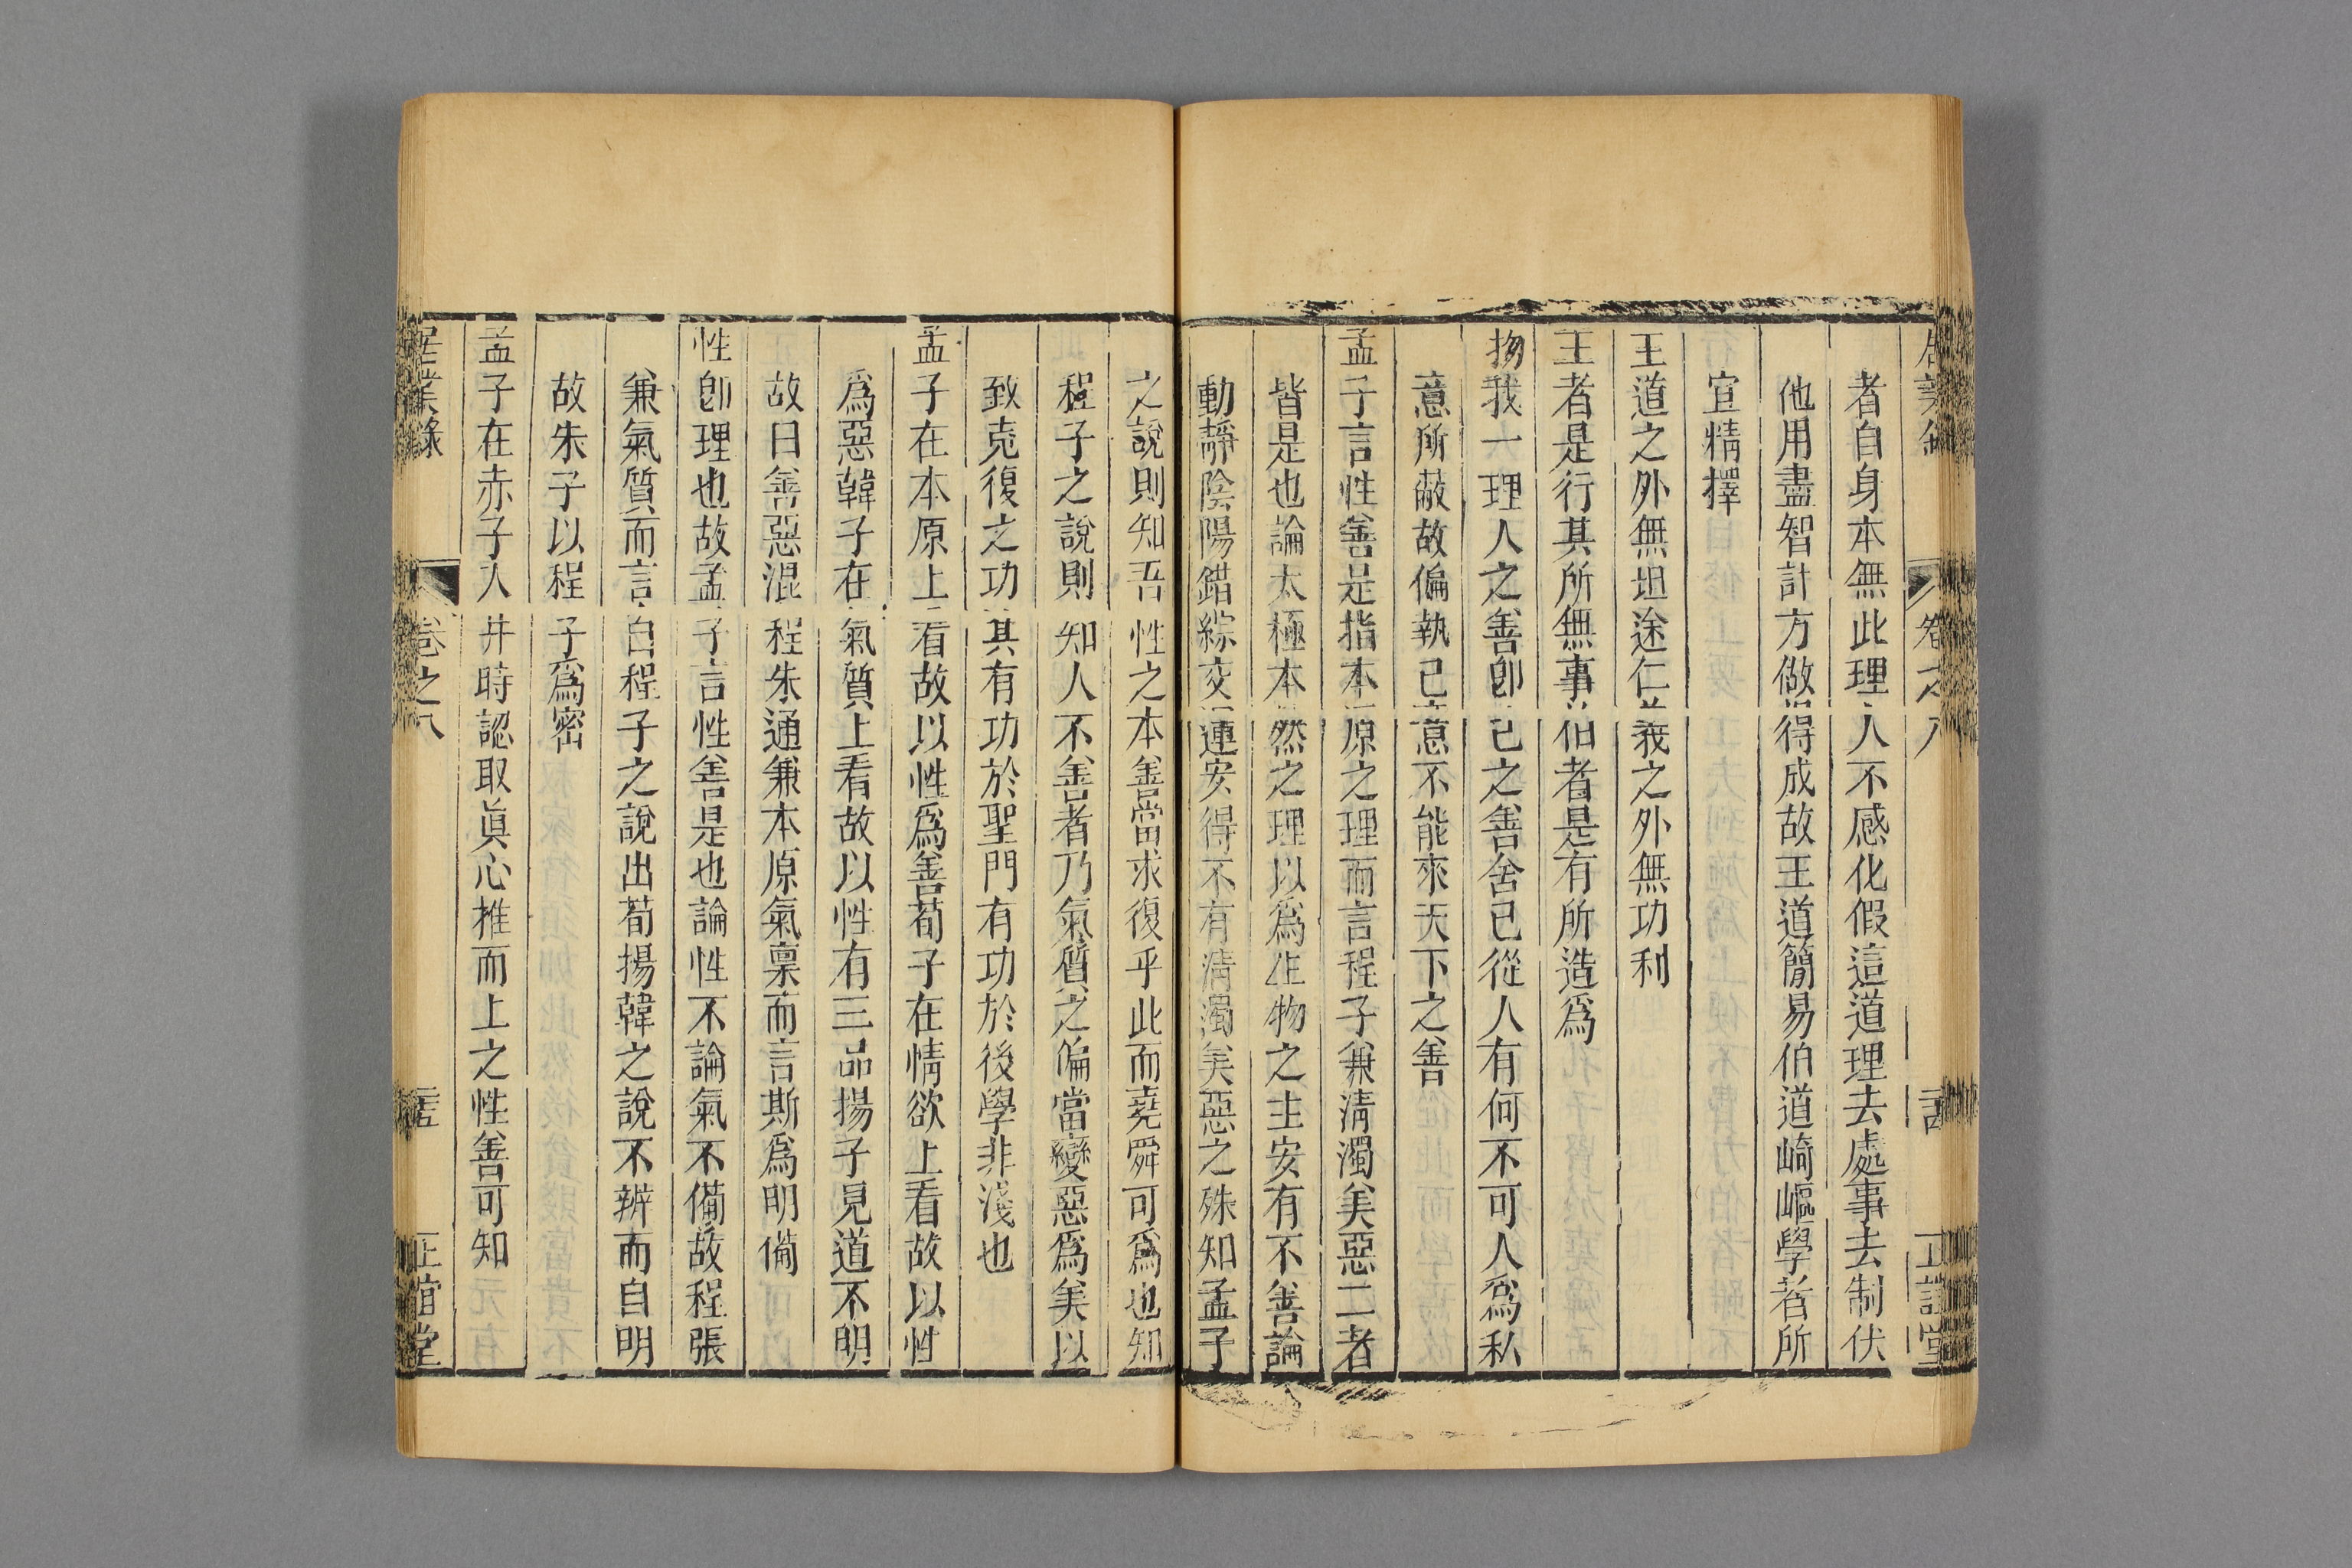 卷之八
者自身本無此理人不感化假這道理去處事去制伏
他用盡智計方做得成故王道簡易伯道崎嶇學者所
宜精擇
王道之外無坦途仁義之外無功利
王者是行其所無事伯者是有所造爲
物我一理人之善卽己之善舍己從人有何不可人爲私
意所蔽故偏執己意不能來天下之善
孟子言性善是指本原之理而言程子兼淸濁美惡二者
皆是也論太極本然之理以爲生物之主安有不善論
動靜陰陽錯綜交運安得不有淸濁美惡之殊知孟子
之說則知吾性之本善當求復乎此而堯舜可爲也知
程子之說則知人不善者乃氣質之偏當變惡爲美以
致克復之功其有功於聖門有功於後學非淺也
孟子在本原上看故以性爲善荀子在情欲上看故以性
爲惡韓子在氣質上看故以性有三品揚子見道不明
故曰善惡混程朱通兼本原氣稟而言斯爲明備
性卽理也故孟子言性善是也論性不論氣不備故程張
兼氣質而言自程子之說出荀揚韓之說不辨而自明
故朱子以程子爲密
孟子在赤子入井時認取眞心推而上之性善可知
居業錄
卷之八
正誼堂